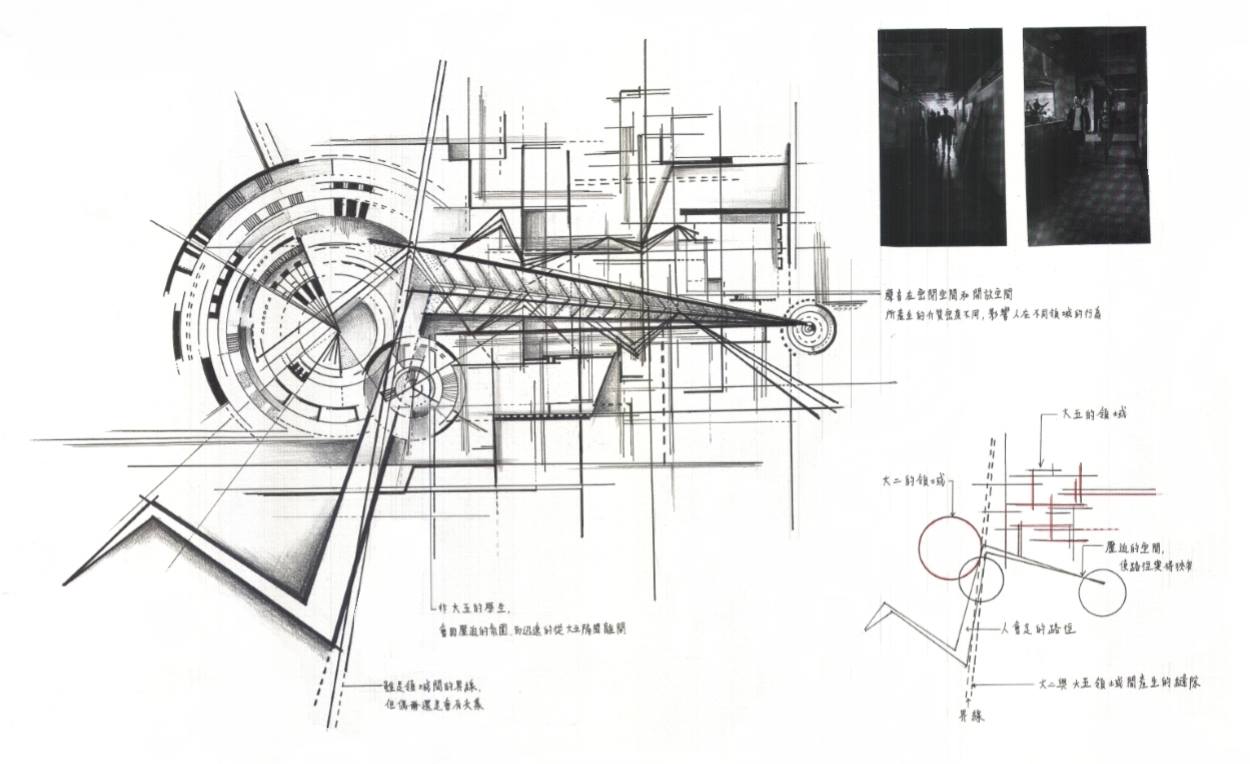 聲音在密閉空間和開放空間
所產生的介質密度不同,影響人在不同領域的行為
大五的領域
大二的領域
壓迫的空間,
使路徑變得狹窄
人會走的路徑
大二與大五領域間產生的縫隙
界線
非大五的學生,
會因壓迫的氛圍,而迅速的從大五隔間離開
雖是領域間的界線,
但偶爾還是會有交集